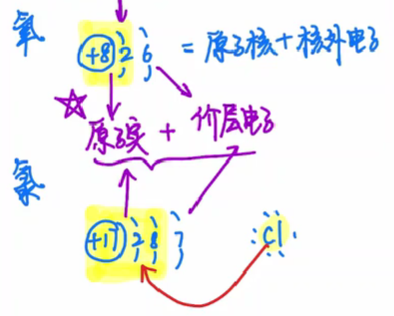 氧
+8 2 6 = 原子核+核外电子
原子实 + 价层电子
氯
+17 2 8 7 Cl